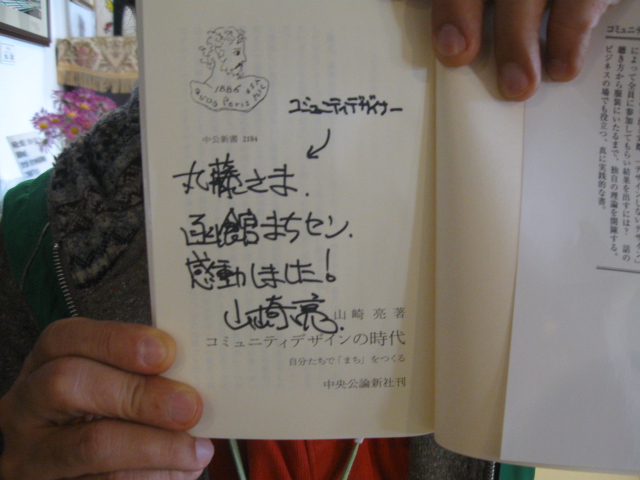 1886
コミュニティデザイナー
中公新書 2184
丸藤さま.
函館まちセン.
感動しました!
山崎亮.
山崎 亮 著
コミュニティデザインの時代
自分たちで「まち」をつくる
中央公論新社刊
全員に参加してもらい結果を出すには? 話の
聴き方から服装にいたるまで、独自の理論を開陳する。
ビジネスの場でも役立つ、真に実践的な書。